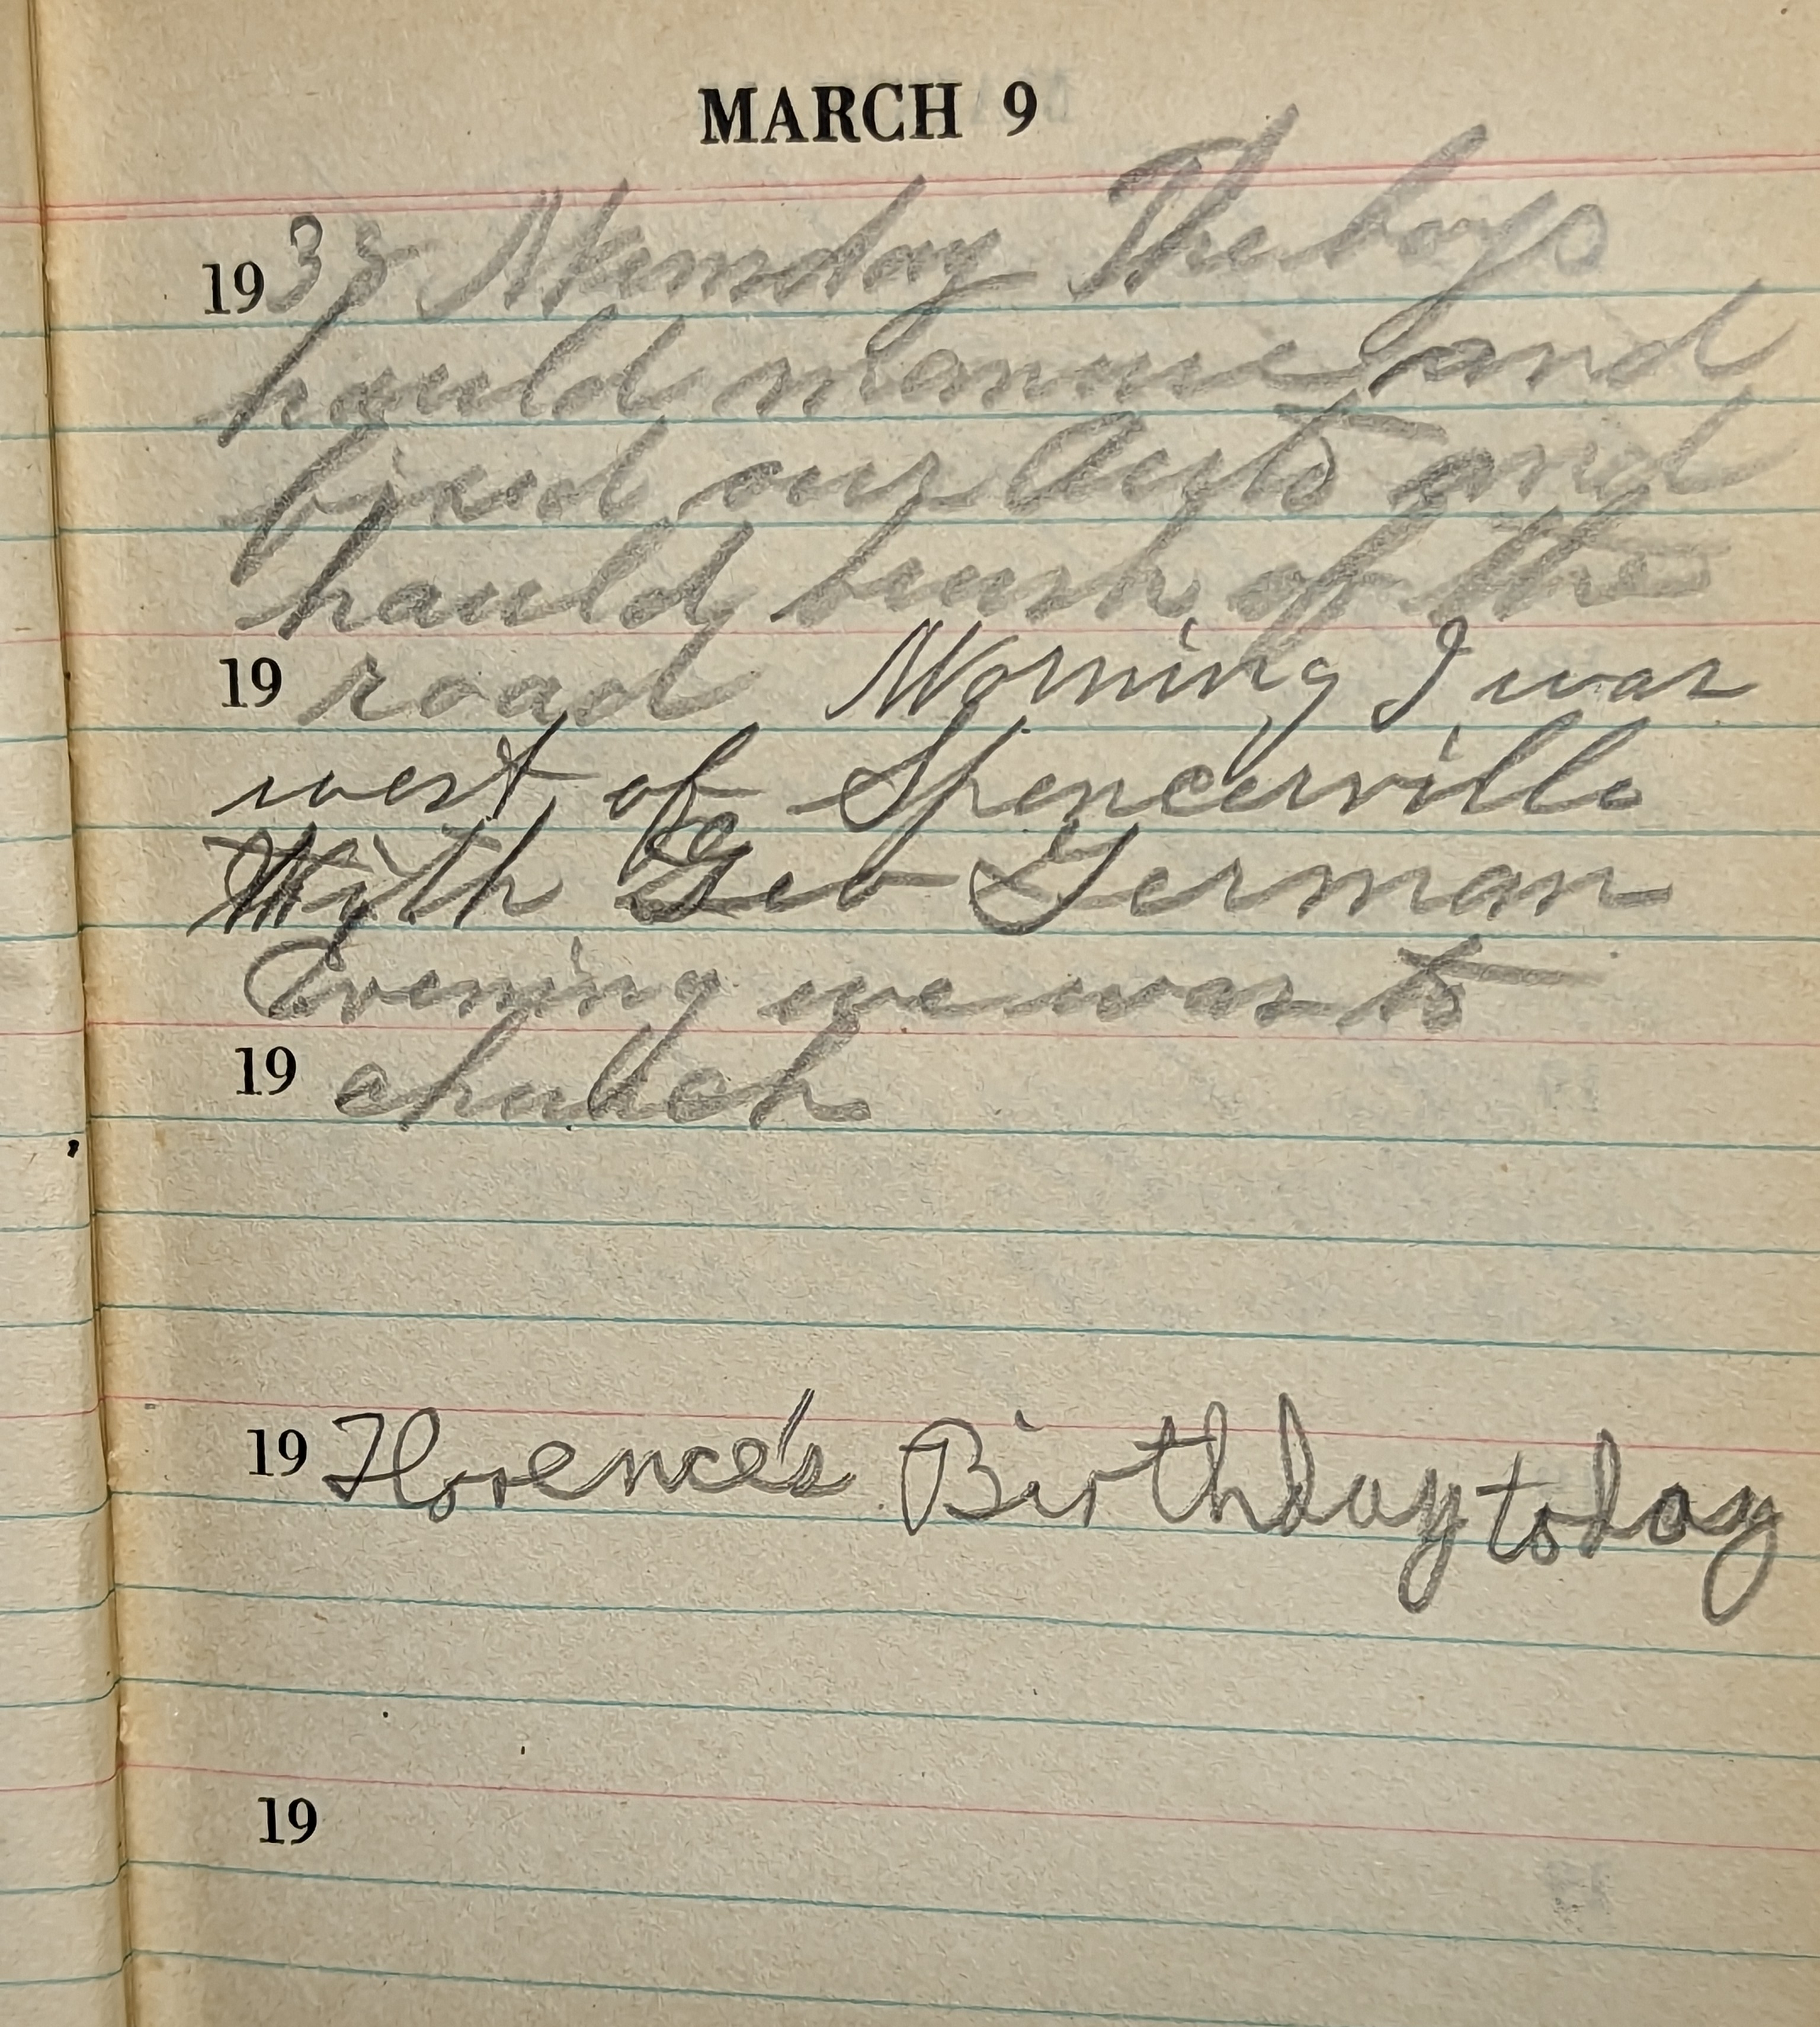 MARCH 9
1933 Thursday The boys
hauld manure and
fixed our Auto and
hauld brush of the
19 road Morning I was
west of Spencerville
With Geo German
Evening we was to
19 church
19 Florence's Birthday today
19